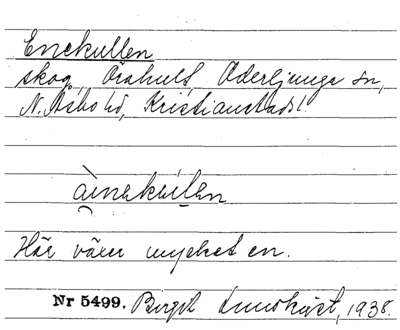 Enekullen
skog, Örahult, Oderljunga sn,
N. Åsbo hd, Kristianstads l.
àinekúlen
Här växer mycket en.
Nr 5499. Birgit Lundkvist, 1938.